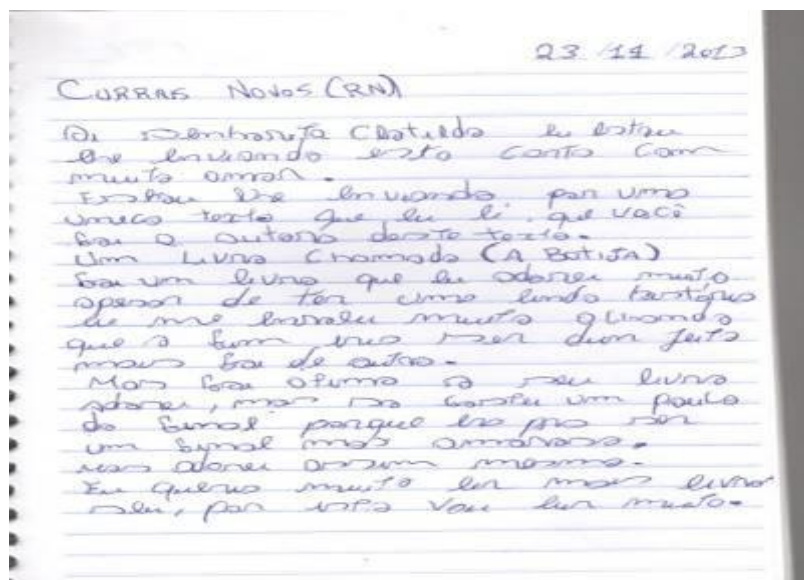 23/11/2013
CURRAS NOVOS (RN)
Oi Senhoreta Clotilde eu estou
lhe enviando esta carta com
muito amor.
Estou lhe enviando por uma
uneco texto que eu li que você
foi a autora deste texto.
Um Livro Chamado (A BOTIJA)
foi um livro que eu adorei muito
apesar de ter uma linda
eu me muito quando
que o fim era ser dum jeito
mais foi de outro.
Mas foi otimo o seu livro
adorei, mas no um pouco
do final porque era pra ser
um fynal mas amoroso.
mas adorei assim mesmo.
Eu quero muito ler mais livro
seu, por isto vou ler muito.